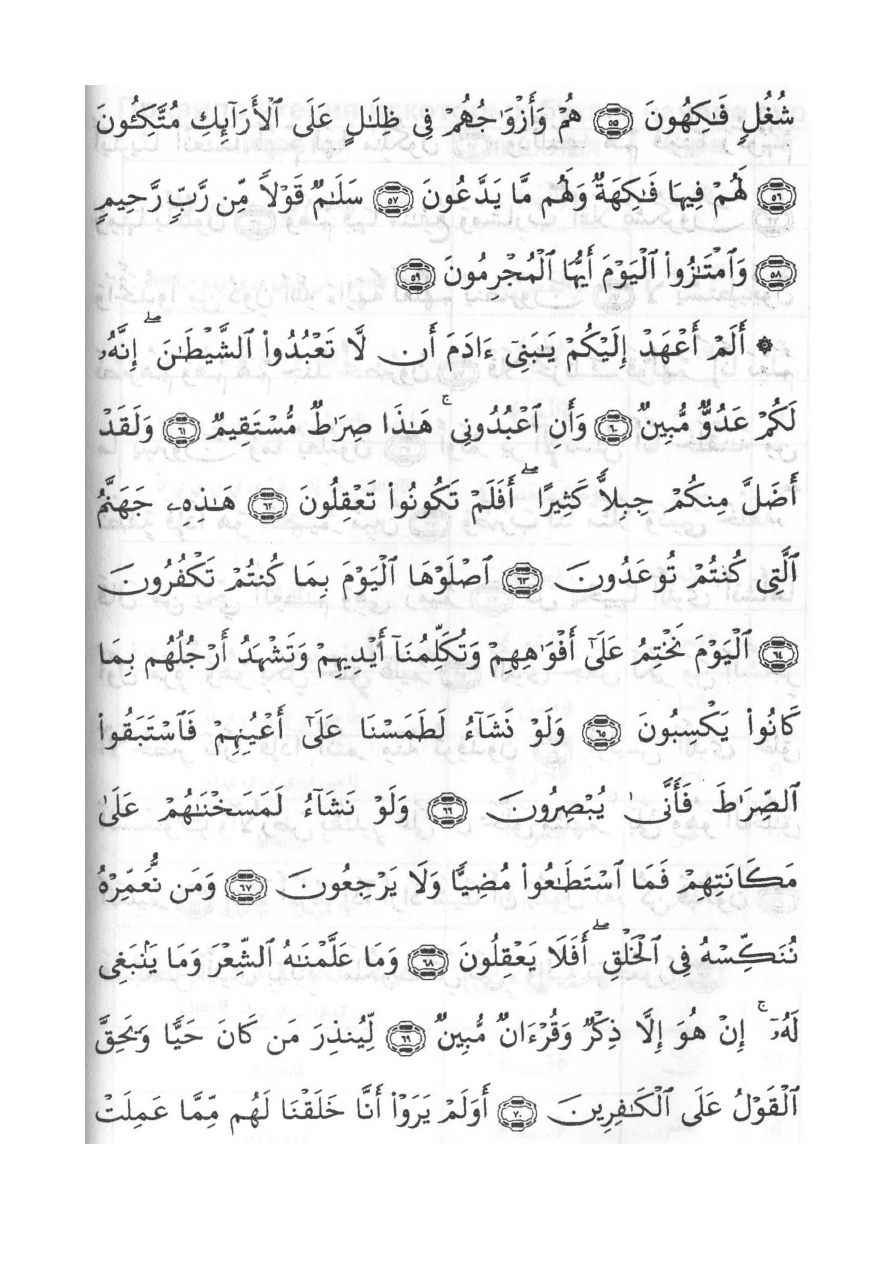 شُغُلٍ فَٰكِهُونَ ﴿٥٥﴾ هُمْ وَأَزْوَٰجُهُمْ فِى ظِلَٰلٍ عَلَى ٱلْأَرَآئِكِ مُتَّكِـُٔونَ
﴿٥٦﴾ لَهُمْ فِيهَا فَٰكِهَةٌ وَلَهُم مَّا يَدَّعُونَ ﴿٥٧﴾ سَلَٰمٌ قَوْلًا مِّن رَّبٍّ رَّحِيمٍ
﴿٥٨﴾ وَٱمْتَٰزُوا۟ ٱلْيَوْمَ أَيُّهَا ٱلْمُجْرِمُونَ ﴿٥٩﴾
۞ أَلَمْ أَعْهَدْ إِلَيْكُمْ يَٰبَنِىٓ ءَادَمَ أَن لَّا تَعْبُدُوا۟ ٱلشَّيْطَٰنَ ۖ إِنَّهُۥ
لَكُمْ عَدُوٌّ مُّبِينٌ ﴿٦٠﴾ وَأَنِ ٱعْبُدُونِى ۚ هَٰذَا صِرَٰطٌ مُّسْتَقِيمٌ ﴿٦١﴾ وَلَقَدْ
أَضَلَّ مِنكُمْ جِبِلًّا كَثِيرًا ۖ أَفَلَمْ تَكُونُوا۟ تَعْقِلُونَ ﴿٦٢﴾ هَٰذِهِۦ جَهَنَّمُ
ٱلَّتِى كُنتُمْ تُوعَدُونَ ﴿٦٣﴾ ٱصْلَوْهَا ٱلْيَوْمَ بِمَا كُنتُمْ تَكْفُرُونَ
﴿٦٤﴾ ٱلْيَوْمَ نَخْتِمُ عَلَىٰٓ أَفْوَٰهِهِمْ وَتُكَلِّمُنَآ أَيْدِيهِمْ وَتَشْهَدُ أَرْجُلُهُم بِمَا
كَانُوا۟ يَكْسِبُونَ ﴿٦٥﴾ وَلَوْ نَشَآءُ لَطَمَسْنَا عَلَىٰٓ أَعْيُنِهِمْ فَٱسْتَبَقُوا۟
ٱلصِّرَٰطَ فَأَنَّىٰ يُبْصِرُونَ ﴿٦٦﴾ وَلَوْ نَشَآءُ لَمَسَخْنَٰهُمْ عَلَىٰ
مَكَانَتِهِمْ فَمَا ٱسْتَطَٰعُوا۟ مُضِيًّا وَلَا يَرْجِعُونَ ﴿٦٧﴾ وَمَن نُّعَمِّرْهُ
نُنَكِّسْهُ فِى ٱلْخَلْقِ ۖ أَفَلَا يَعْقِلُونَ ﴿٦٨﴾ وَمَا عَلَّمْنَٰهُ ٱلشِّعْرَ وَمَا يَنۢبَغِى
لَهُۥٓ ۚ إِنْ هُوَ إِلَّا ذِكْرٌ وَقُرْءَانٌ مُّبِينٌ ﴿٦٩﴾ لِّيُنذِرَ مَن كَانَ حَيًّا وَيَحِقَّ
ٱلْقَوْلُ عَلَى ٱلْكَٰفِرِينَ ﴿٧٠﴾ أَوَلَمْ يَرَوْا۟ أَنَّا خَلَقْنَا لَهُم مِّمَّا عَمِلَتْ